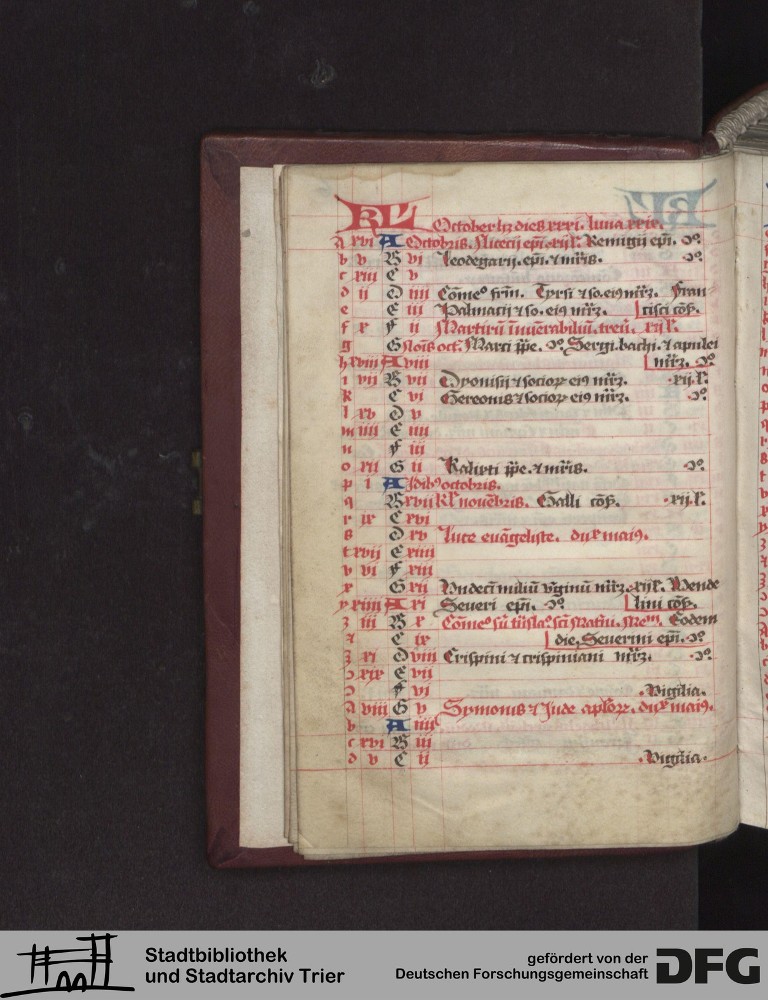 KL October hꝫ dies xxxi. luna xxix.
a xvi A Octobris. Nicecij epī. xij l̄. Remigij epī.
b v B vi Leodegarij. epī. ⁊ mr̄is.
c xiii C v
d ii D iiii Cōmeº frm̄. Tyrsi ⁊ so. eiꝯ mr̄ꝝ. Fran
e E iii Palmacij ⁊ so. eiꝯ mr̄ꝝ. cisci cōf.
f x F ii Martirū īnūerabiliū. treū. xij l̄.
g G Noīs oct. Marci pp̄e. Sergi. bachi. ⁊ apulei
h xviii A viii mr̄ꝝ.
i vii B vii Dyonisij ⁊ socioꝝ eiꝯ mr̄ꝝ. xij. l̄.
k C vi Gereonis ⁊ socioꝝ eiꝯ mr̄ꝝ.
l xv D v
m iiii E iiii
n F iii
o xii G ii Kalixti pp̄e. ⁊ mr̄is.
p i A Idibꝰ octobris.
q B xvii kl̄ novēbris. Galli cōf. xij. l̄.
r ix C xvi
s D xv Luce euāgeliste. dux maiꝯ.
t xvij E xiiii
v vi F xiii
x G xii Undecī miliū v̄ginū mr̄ꝝ. xij l̄. Wende
y xiiii A xi Severi epī. lini cōf.
z iii B x Eodem
C ix die, Severini epī.
xi D viii Crispini ⁊ crispiniani mr̄ꝝ.
xix E vii
F vi Vigilia.
a viii G v Symonis ⁊ Jude aplōꝝ. dux maiꝯ.
b A iiii
c xvi B iii
d v C ii Vigilia.
Stadtbibliothek
und Stadtarchiv Trier
gefördert von der
Deutschen Forschungsgemeinschaft
DFG